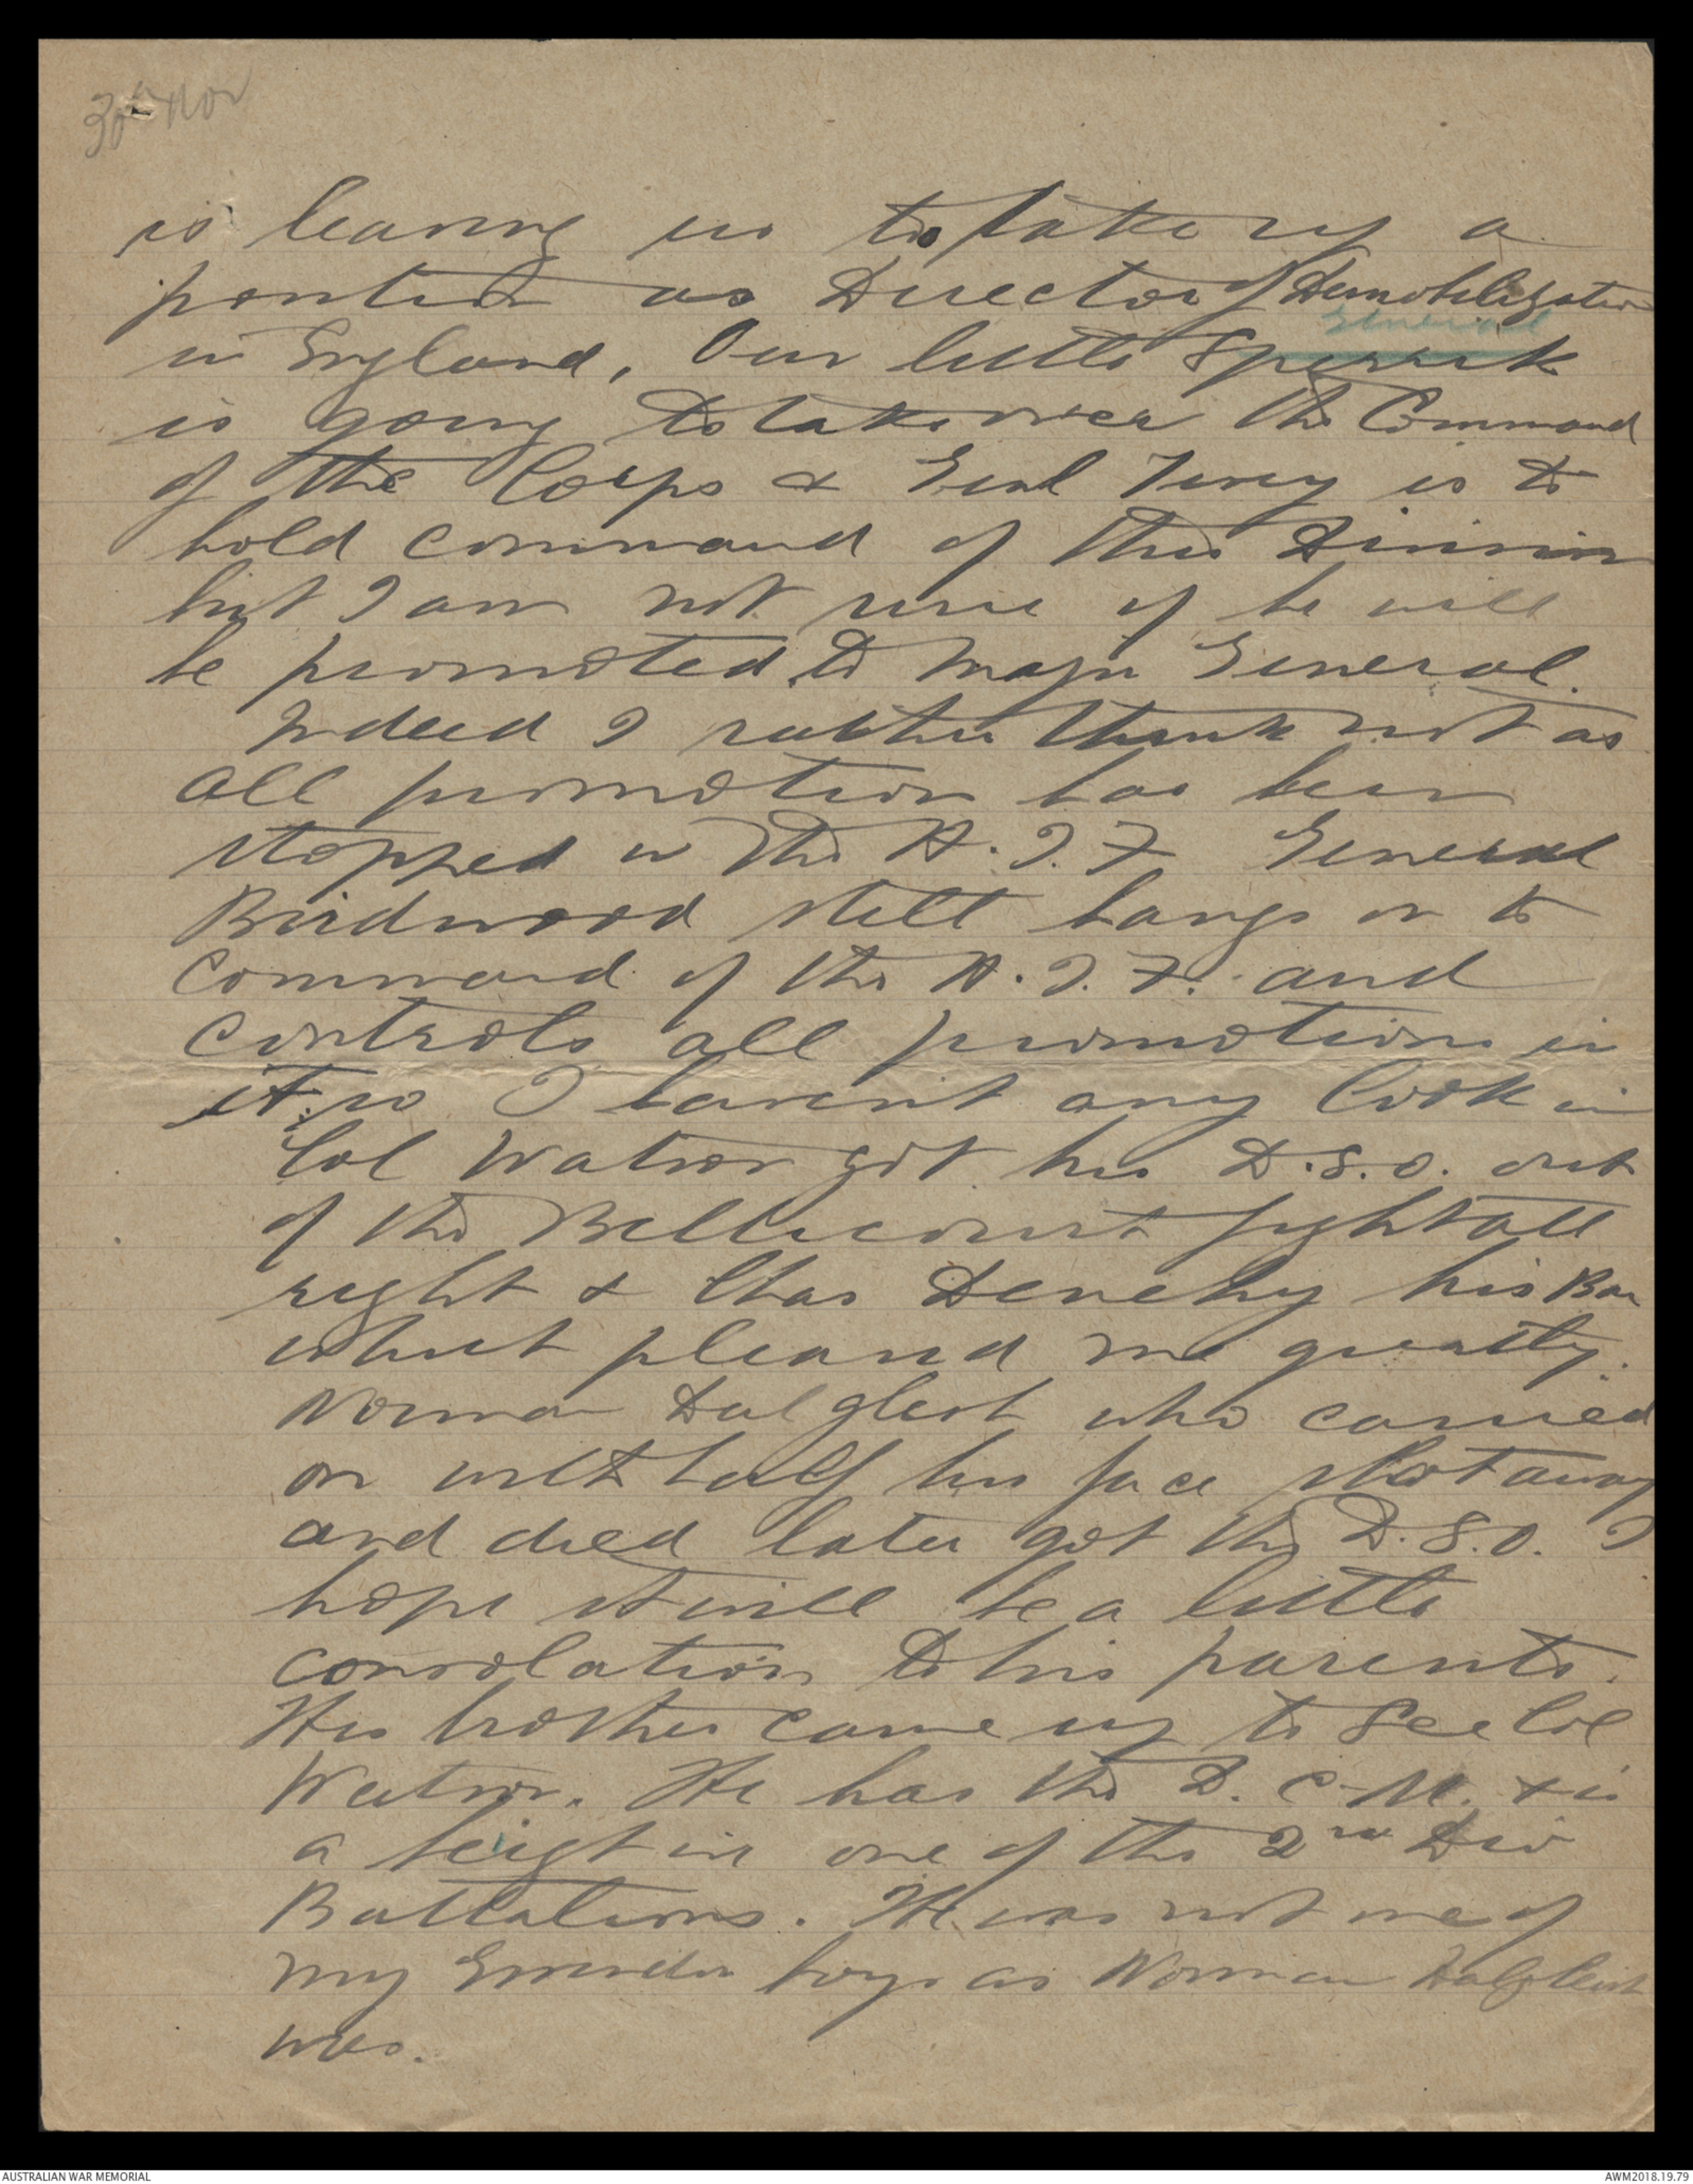 30th Nov
is leaving us to take up a
position as Director of Demobilization
General
in England, Our little Sparrk
is going to take over the Command
of the Corps & Genl Tivey is to
hold command of this Division
but I am not sure if he will
be promoted to Major General.
Indeed I rather think not as
all promotion has been
stopped in the A.I.F General
Birdwood still hangs on to
command of the A.I.F. and
controls all promotions in
it so I haven't any look in
Col Watson got his D.S.O. out
of the Bellicourt fight all
right & Chas Denehy his Bar
which pleased me greatly.
Norman Dalgleish who carried
on with half his face shot away
and died later got the D.S.O. I
hope it will be a little
consolation to his parents.
His brother came up to see Col
Watson. He has the D.C.M. & is
a Sergt in one of the 2nd Div
Battalions. He was not one of
my boys as Norman Dalgleish
was.
AUSTRALIAN WAR MEMORIAL
AWM2018.19.79